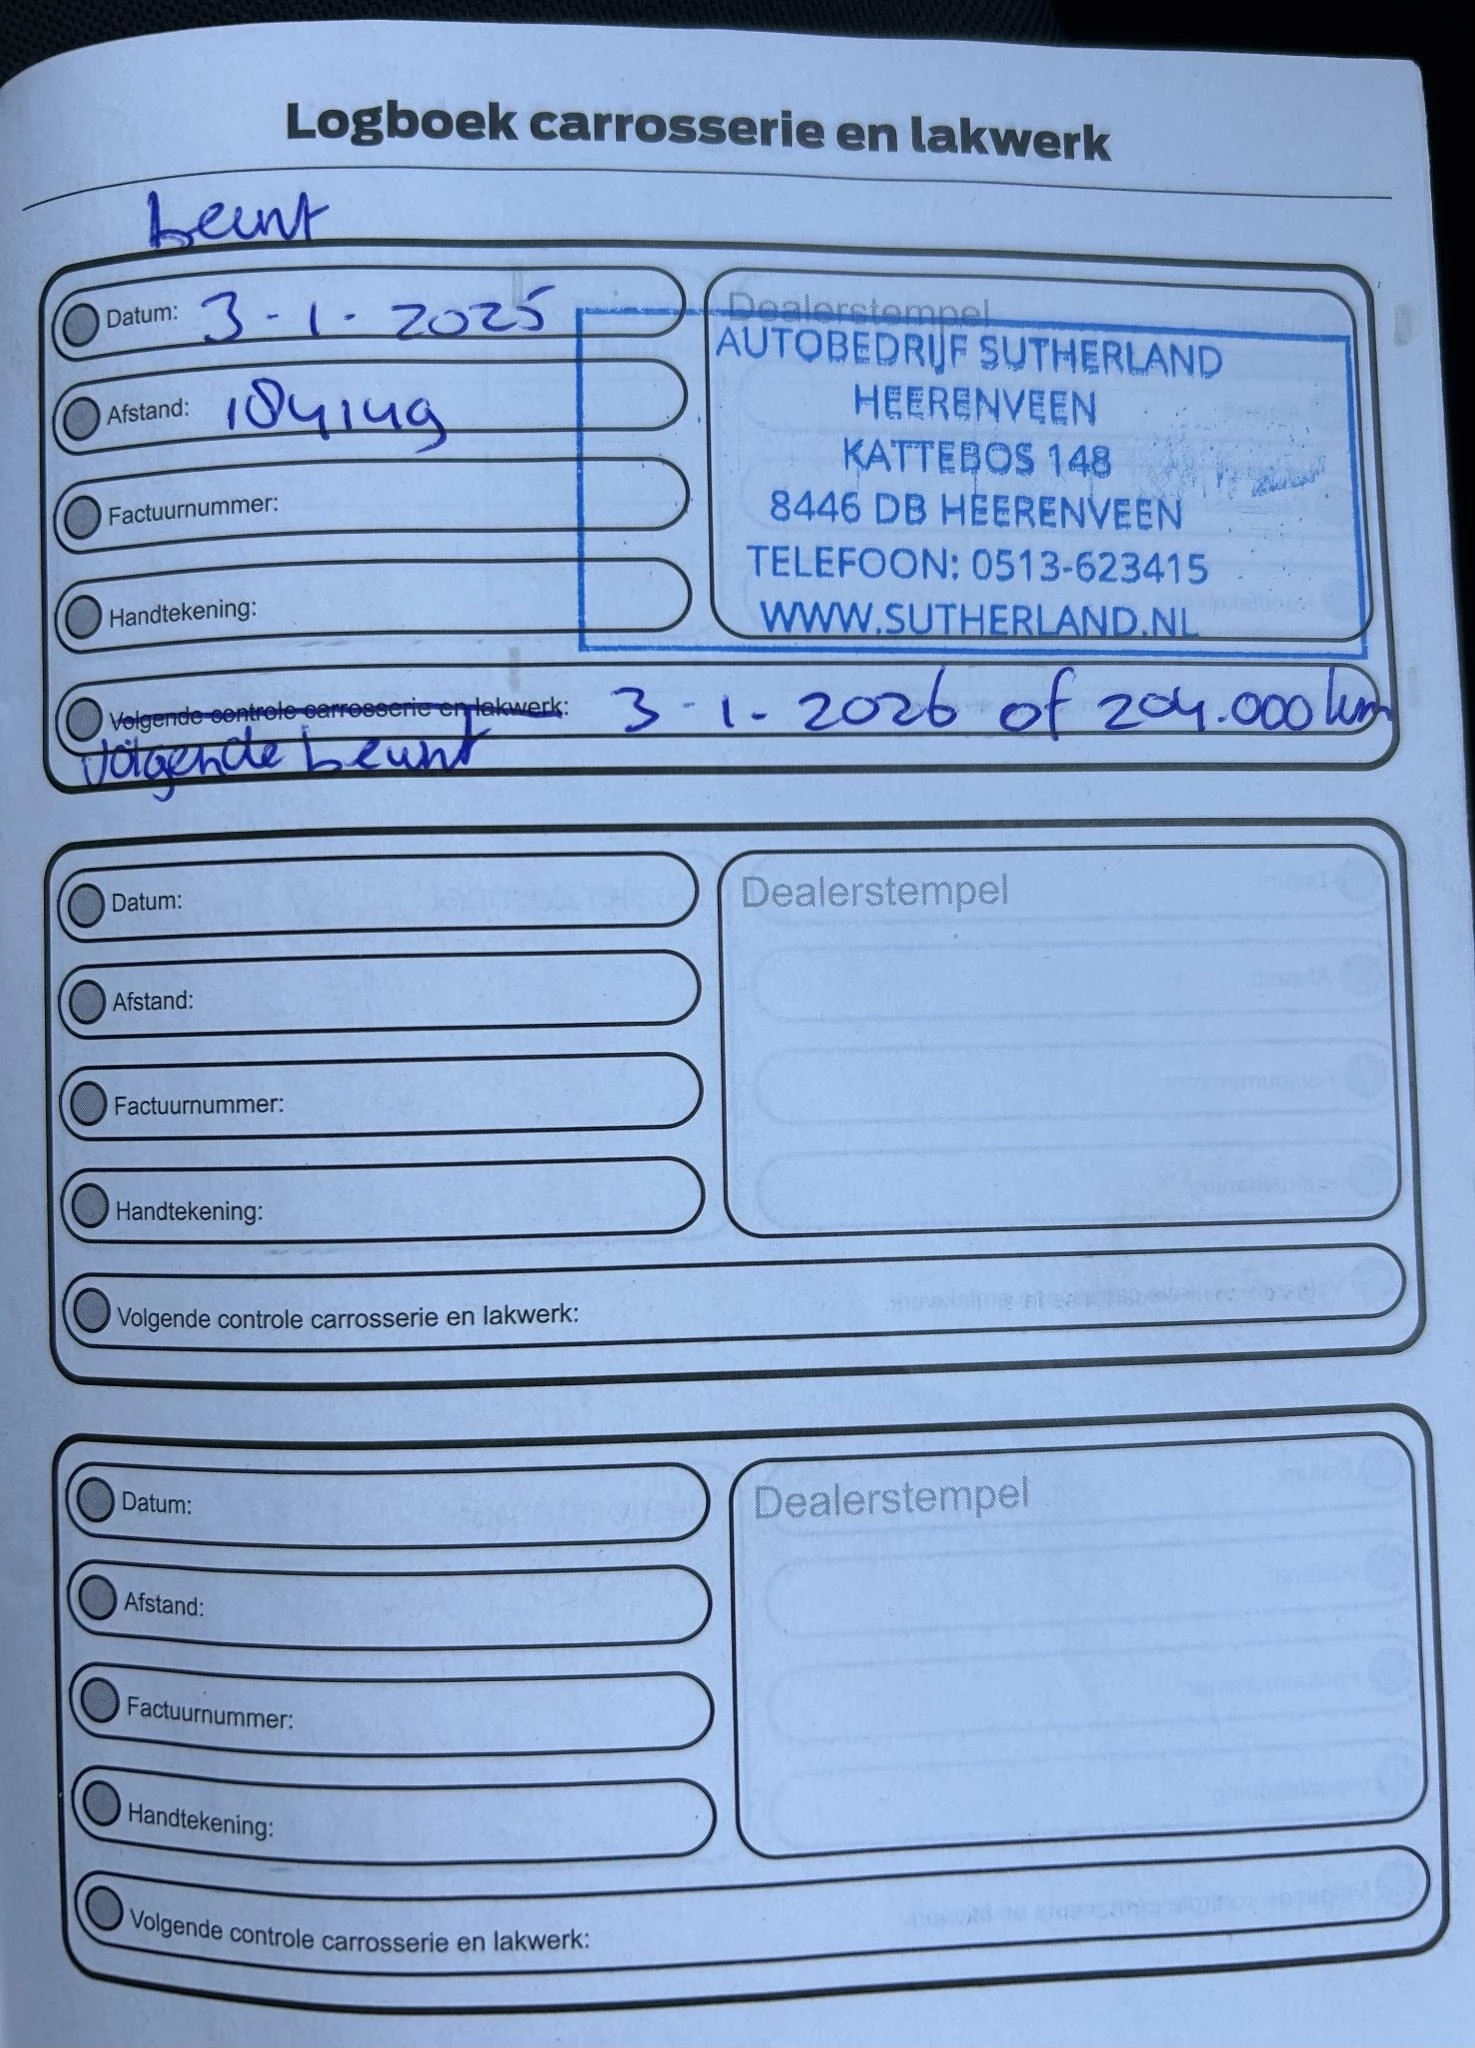 Logboek carrosserie en lakwerk
beurt
Datum: 3-1-2025
Afstand: 184149
Factuurnummer:
Handtekening:
Dealerstempel
AUTOBEDRIJF SUTHERLAND
HEERENVEEN
KATTEBOS 148
8446 DB HEERENVEEN
TELEFOON: 0513-623415
WWW.SUTHERLAND.NL
Volgende controle carrosserie en lakwerk: 3-1-2026 of 204.000 km
volgende beurt
Datum:
Afstand:
Factuurnummer:
Handtekening:
Dealerstempel
Volgende controle carrosserie en lakwerk:
Datum:
Afstand:
Factuurnummer:
Handtekening:
Dealerstempel
Volgende controle carrosserie en lakwerk: